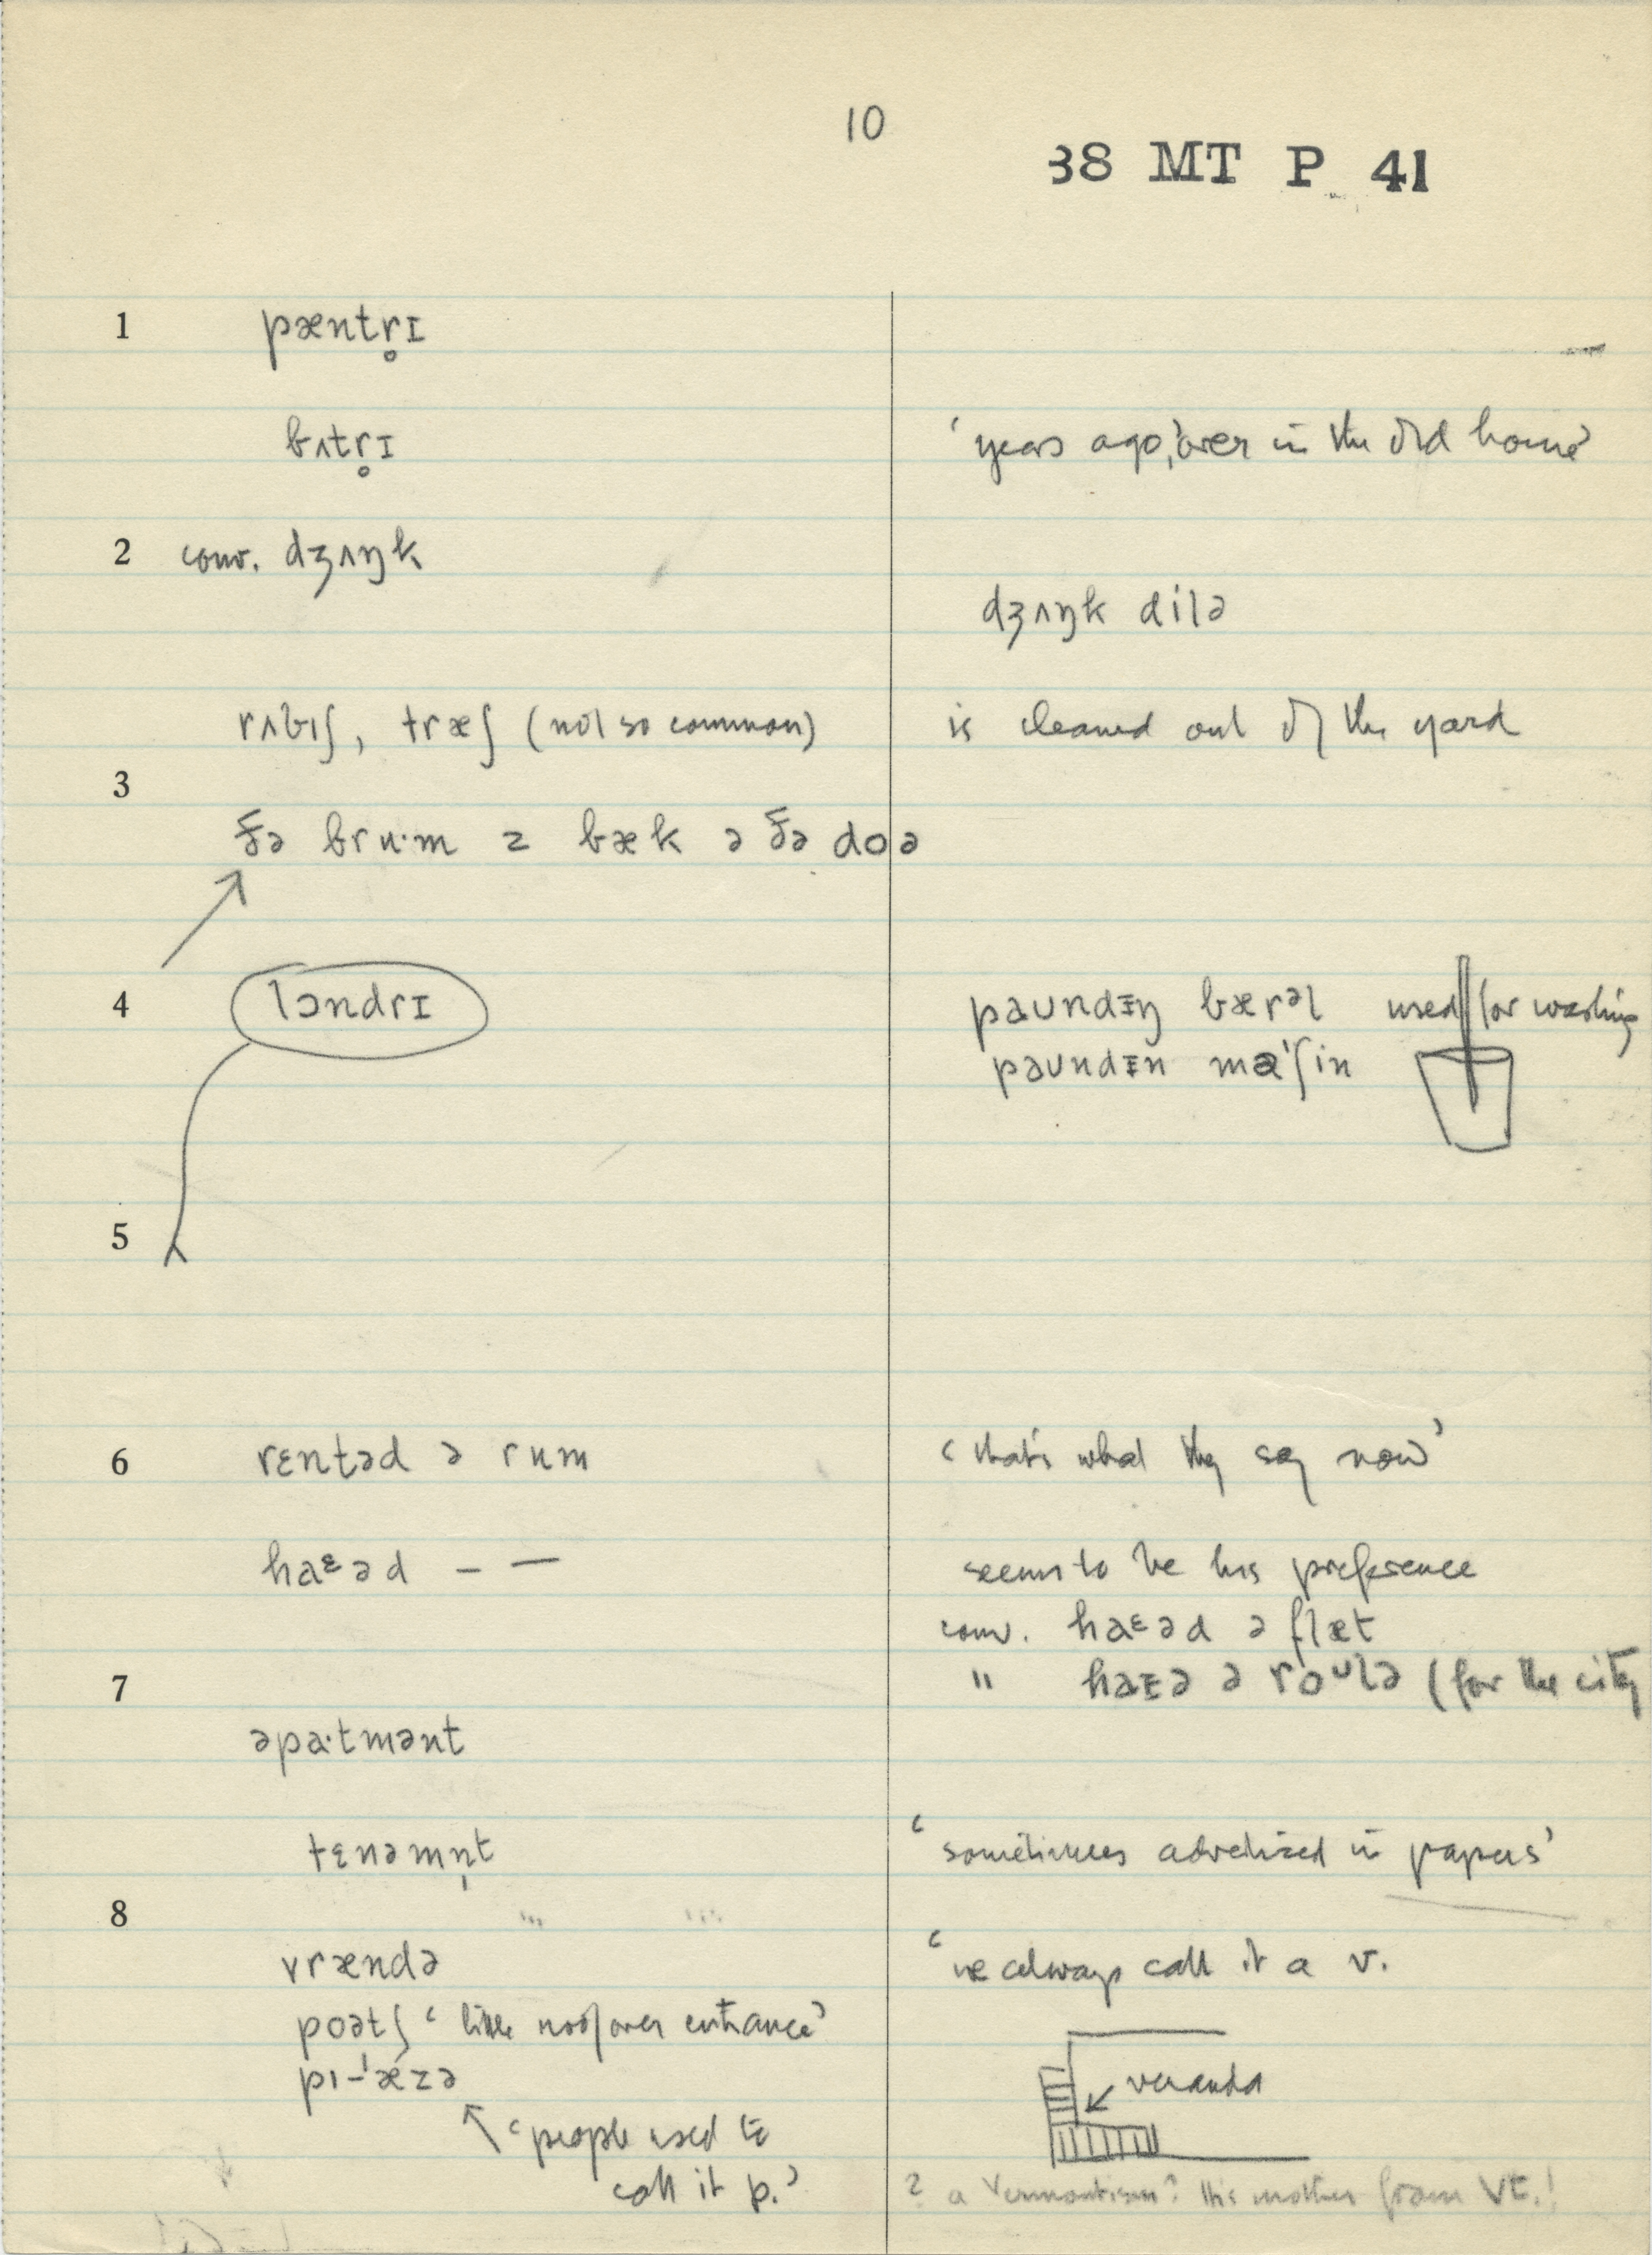 10
38 MT P 41
1 pæntr̥ɪ
bʌtr̥ɪ 'years ago, over in the old home'
2 conv. dʒʌŋk
dʒʌŋk dilə
rʌbɪʃ, træʃ (not so common) is cleaned out of the yard
3
ðə brʉ·m z bæk ə ðə doə
4 lɔndrɪ paʊndɪŋ bærəl used for washing
paʊndɪn məˈʃin
5
6 rɛntəd ə rʉm 'that's what they say now'
haᵋəd – — seems to be his preference
conv. haᵋəd ə flæt
" haɪə ə roᵘlə (for the city
7
əpa·tmənt
tɛnəmn̩t 'sometimes advertized in papers'
8
vrændə 'we always call it a v.
poətʃ 'little roof over entrance'
pɪ-ˈæzə veranda
'people used to
call it p.'
? a Vermontism? His mother from VT.!